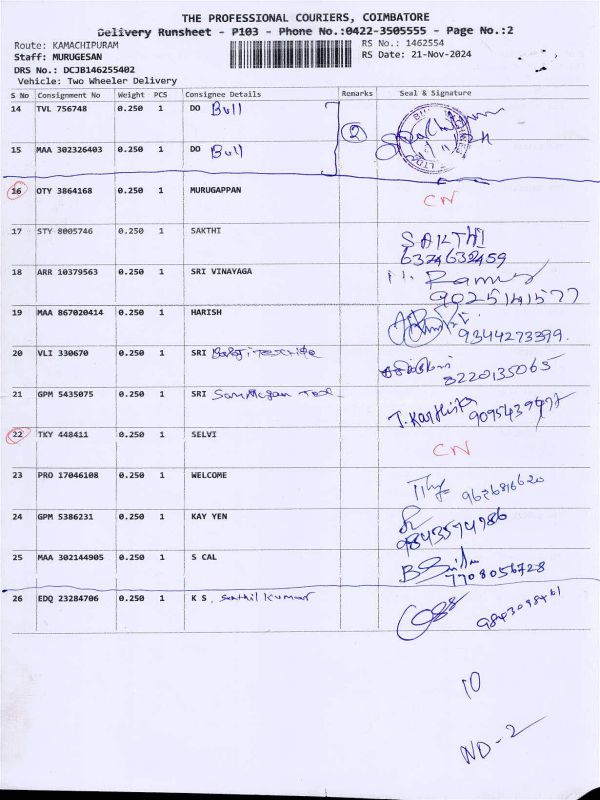 THE PROFESSIONAL COURIERS, COIMBATORE
Delivery Runsheet - P103 - Phone No.:0422-3505555 - Page No.:2
Route: KAMACHIPURAM RS No.: 1462554
Staff: MURUGESAN RS Date: 21-Nov-2024
DRS No.: DCJB146255402
Vehicle: Two Wheeler Delivery
S No Consignment No Weight PCS Consignee Details Remarks Seal & Signature
14 TVL 756748 0.250 1 DO Bull
②
15 MAA 302326403 0.250 1 DO Bull
16 OTY 3864168 0.250 1 MURUGAPPAN CN
17 STY 8005746 0.250 1 SAKTHI SAKTHI
6374632459
18 ARR 10379563 0.250 1 SRI VINAYAGA
9025141577
19 MAA 867020414 0.250 1 HARISH 9344273399.
20 VLI 330670 0.250 1 SRI
8220135065
21 GPM 5435075 0.250 1 SRI T. Karthika
22 TKY 448411 0.250 1 SELVI CN
23 PRO 17046108 0.250 1 WELCOME
24 GPM 5386231 0.250 1 KAY YEN
9843574986
25 MAA 302144905 0.250 1 S CAL
7708056728
26 EDQ 23284706 0.250 1 K S. Senthil Kumar
10
ND-2